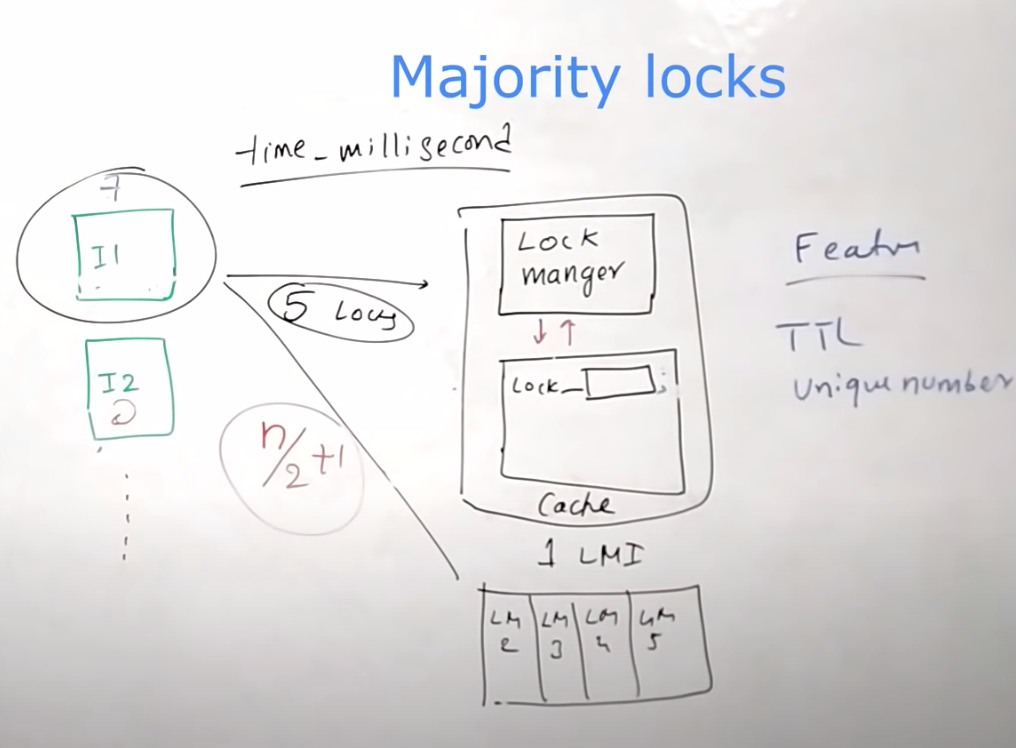 Majority locks
time_millisecond
7
I1
5 Locks
Lock
manger
↓ ↑
Lock_
Cache
1 LMI
I2
n/2+1
LM
2
LM
3
LM
4
LM
5
Featur
TTL
Unique number